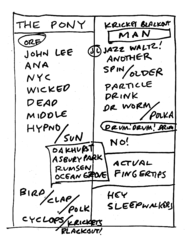 THE PONY
ORE
JOHN LEE
ANA
NYC
WICKED
DEAD
MIDDLE
HYPNO/SUN
OAKHURST
ASBURY PARK
RUMSEN
OCEAN GROVE
BIRD/CLAP/POLK
CYCLOPS/KRICKETS
BLACKOUT!
KRICKET BLACKOUT
MAN
JAZZ WALTZ!
ANOTHER
SPIN/OLDER
PARTICLE
DRINK
DR WORM/POLKA
DRUM! DRUM!
NO!
ACTUAL
FINGERTIPS
HEY
SLEEPWALKERS